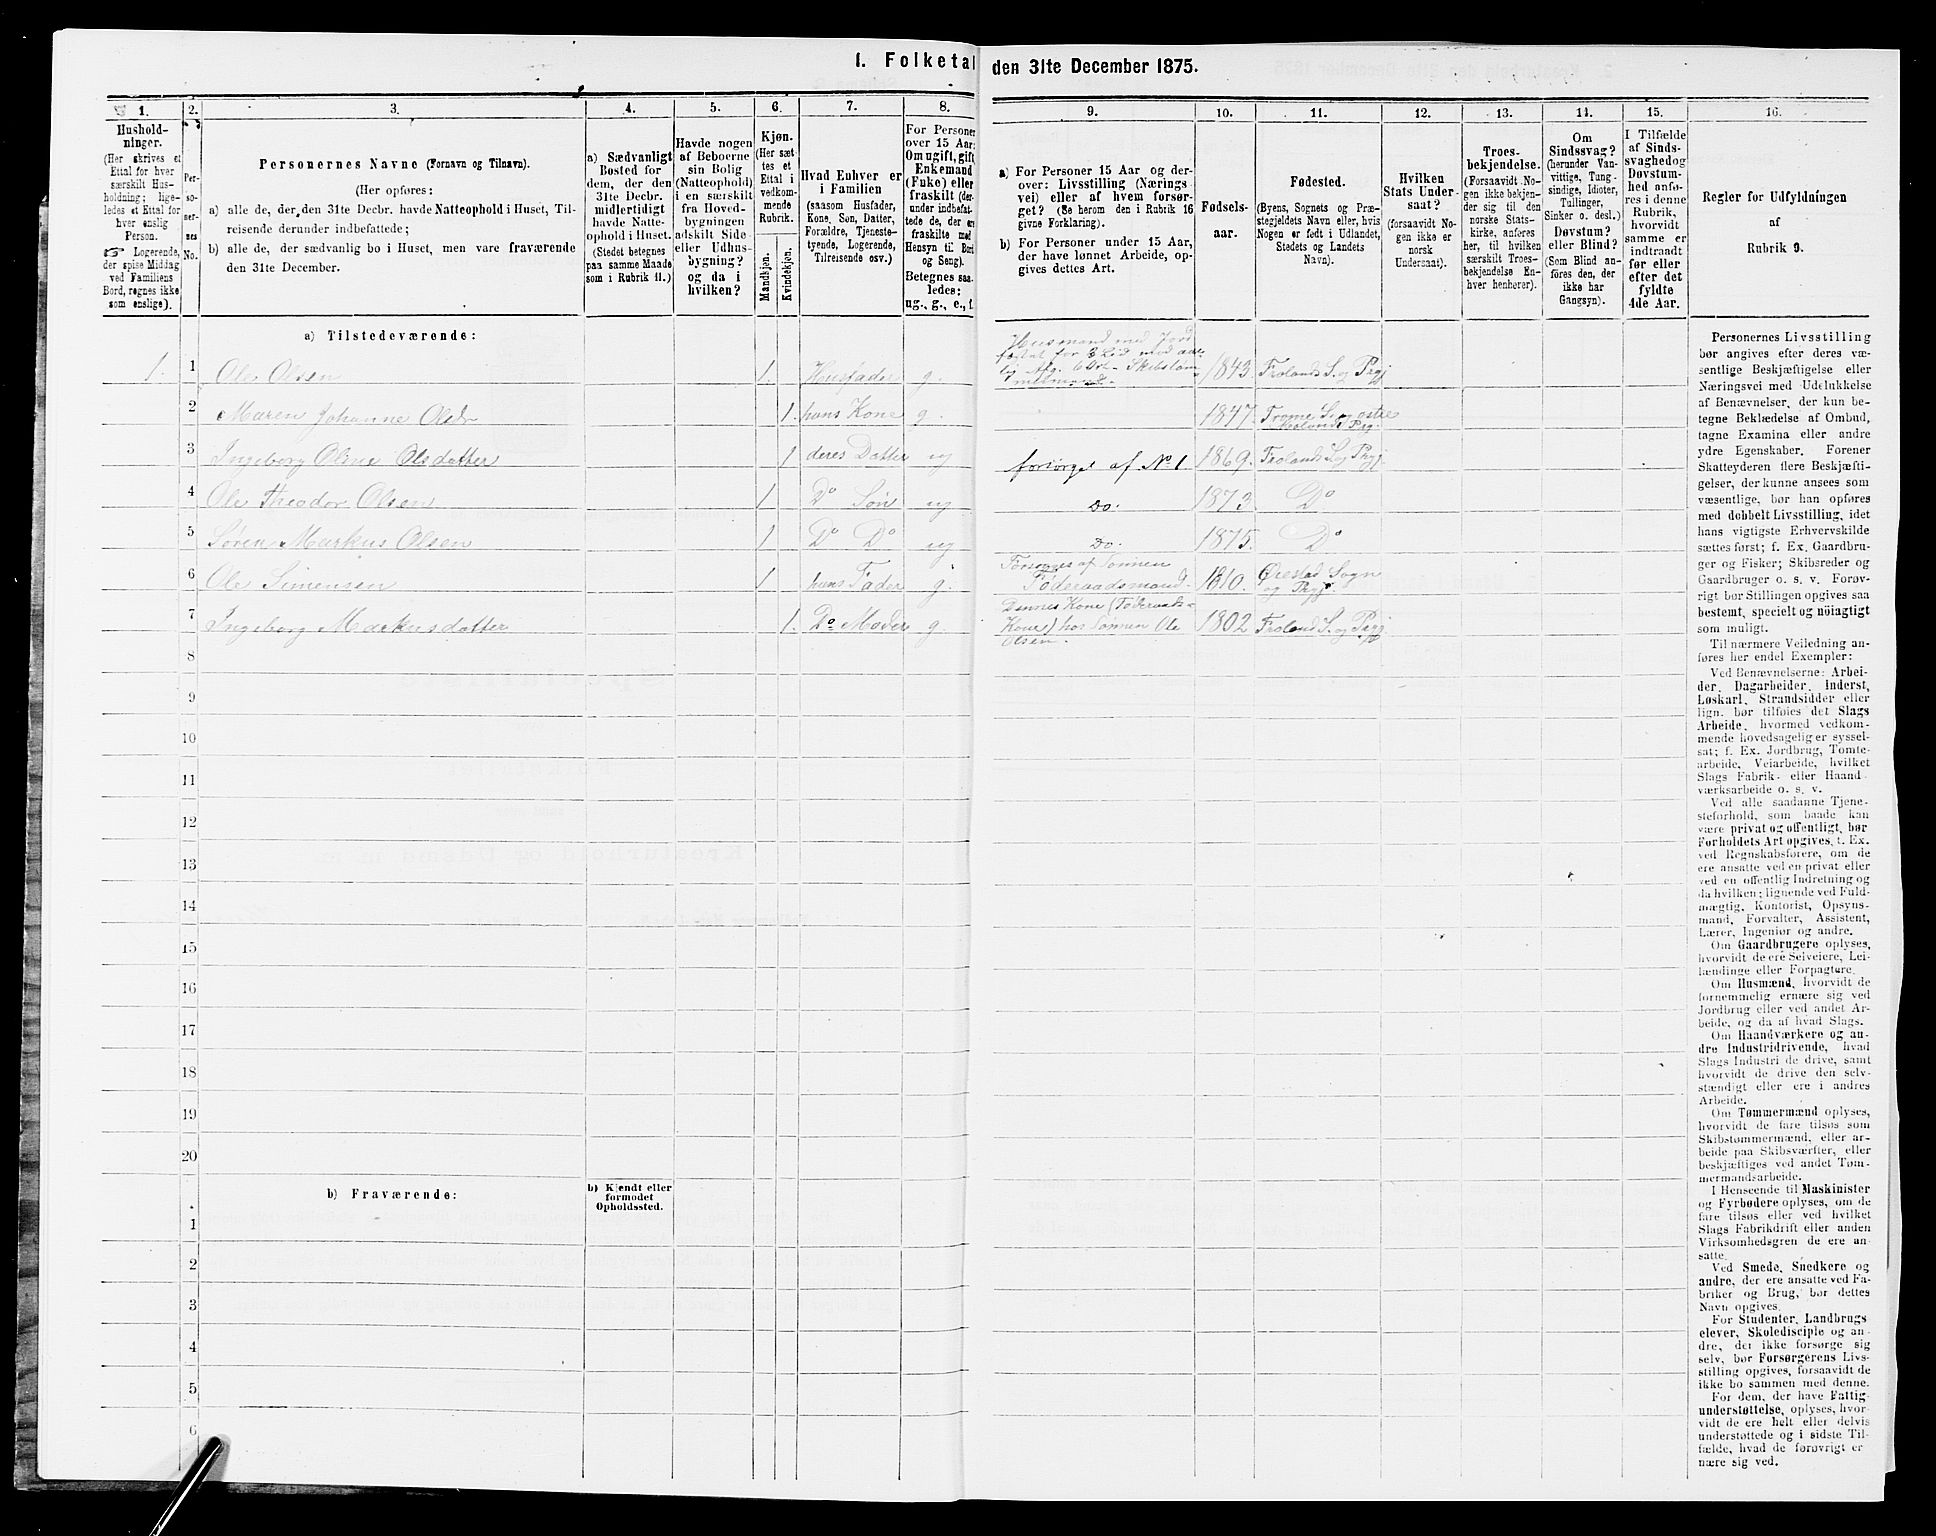 1. Folketal den 31te December 1875.
1. 2. 3. 4. 5. 6. 7. 8. 9. 10. 11. 12. 13. 14. 15. 16.
Hushold-
ninger.
(Her skrives et
Ettal for hver
særskilt Hus-
holdning; lige-
ledes et Ettal for
hver enslig
Person.
☞ Logerende,
der spise Middag
ved Familiens
Bord, regnes ikke
som enslige).
Per-
so-
ner-
nes
No.
Personernes Navne (Fornavn og Tilnavn).
(Her opføres:
a) alle de, der den 31te Decbr. havde Natteophold i Huset, Til-
reisende derunder indbefattede;
b) alle de, der sædvanlig bo i Huset, men vare fraværende
den 31te December.
a) Sædvanligt
Bosted for
dem, der den
31te Decbr.
midlertidigt
havde Natte-
ophold i Huset.
(Stedet betegnes
paa samme Maade
som i Rubrik 11.)
Havde nogen
af Beboerne
sin Bolig
(Natteophold)
i en særskilt
fra Hoved-
bygningen
adskilt Side-
eller Udhus-
bygning?
og da i
hvilken?
Kjøn.
(Her sæt-
tes et
Ettal i
vedkom-
mende
Rubrik.
Mandkjøn.
Kvindekjøn.
Hvad Enhver er
i Familien
(saasom Husfader,
Kone, Søn, Datter,
Forældre, Tjeneste-
tyende, Logerende,
Tilreisende osv.)
For Personer
over 15 Aar:
Om ugift, gift,
Enkemand
(Enke) eller
fraskilt (der-
under indbefat-
tede de, der ere
fraskilte med
Hensyn til Bord
og Seng).
Betegnes saa-
ledes:
ug., g., e., f.
a) For Personer 15 Aar og der-
over: Livsstilling (Nærings-
vei) eller af hvem forsør-
get? (Se herom den i Rubrik 16
givne Forklaring).
b) For Personer under 15 Aar,
der have lønnet Arbeide, op-
gives dettes Art.
Fødsels-
aar.
Fødested.
(Byens, Sognets og Præ-
stegjeldets Navn eller, hvis
Nogen er født i Udlandet,
Stedets og Landets
Navn).
Hvilken
Stats Under-
saat?
(forsaavidt No-
gen ikke er
norsk
Undersaat).
Troes-
bekjendelse.
(Forsaavidt No-
gen ikke bekjen-
der sig til den
norske Stats-
kirke, anføres
her, til hvilken
særskilt Troes-
bekjendelse En-
hver henhører).
Om
Sindssvag?
(herunder Van-
vittige, Tung-
sindige, Idioter,
Tullinger,
Sinker o. desl.)
Døvstum?
eller Blind?
(Som Blind an-
føres den, der
ikke har
Gangsyn).
I Tilfælde
af Sinds-
svaghed og
Døvstum-
hed anfø-
res i denne
Rubrik,
hvorvidt
samme er
indtraadt
før eller
efter det
fyldte
4de Aar.
Regler for Udfyldningen
af
Rubrik 9.
a) Tilstedeværende:
1. 1 Ole Olsen 1. Husfader g. Husmand med Jord 1843 Frolands S. og Prgj
2 Maren Johanne Olsdr 1. hans Kone g. 1847. Tromø S. og østre
3 Ingeborg Oline Olsdatter 1 deres Datter ug forsørget af No 1 1869. Frolands S. og Prgj.
4 Ole Theodor Olsen 1 Do Søn ug Do. 1873. Do
5 Søren Markus Olsen 1 Do Do ug Do. 1875. Do
6 Ole Simensen 1 hans Fader g. Forsørges af Sønnen
Føderaadsmand 1810. Øiestad Sogn
og Prgj.
7 Ingeborg Markusdatter 1. Do Moder g. Dennes Kone (Føderaads-
Kone) hos Sønnen Ole
Olsen. 1802 Froland S. og Prgj.
8
9
10
11
12
13
14
15
16
17
18
19
20
b) Fraværende:
b) Kjendt eller
formodet
Opholdssted.
1
2
3
4
5
6
Personernes Livsstilling
bør angives efter deres væ-
sentlige Beskjæftigelse eller
Næringsvei med Udelukkelse
af Benævnelser, der kun be-
tegne Beklædelse af Ombud,
tagne Examina eller andre
ydre Egenskaber. Forener
Skatteyderen flere Beskjæfti-
gelser, der kunne ansees som
væsentlige, bør han opføres
med dobbelt Livsstilling, idet
hans vigtigste Erhvervskilde
sættes først; f. Ex. Gaardbru-
ger og Fisker; Skibsreder og
Gaardbruger o. s. v. Forøv-
rigt bør Stillingen opgives saa
bestemt, specielt og nöiagtigt
som muligt.
Til nærmere Veiledning an-
føres her endel Exempler:
Ved Benævnelserne: Arbei-
der, Dagarbeider, Inderst,
Løskarl, Strandsidder eller
lign. bør tilføies det Slags
Arbeide, hvormed vedkom-
mende hovedsagelig er syssel-
sat; f. Ex. Jordbrug, Tomte-
arbeide, Veiarbeide, hvilket
Slags Fabrik- eller Haand-
værksarbeide o. s. v.
Ved alle saadanne Tjene-
steforhold, som baade kan
være privat og offentligt, bør
Forholdets Art opgives, f. Ex.
ved Regnskabsførere, om de
ere ansatte ved en privat eller
ved en offentlig Indretning og
da hvilken; lignende ved Fuld-
mægtig, Kontorist, Opsyns-
mand, Forvalter, Assistent,
Lærer, Ingeniør og andre.
Om Gaardbrugere oplyses,
hvorvidt de ere Selveiere, Lei-
lændinge eller Forpagtere.
Om Husmænd, hvorvidt de
fornemmelig ernære sig ved
Jordbrug eller ved andet Ar-
beide, og da af hvad Slags.
Om Haandværkere og an-
dre Industridrivende, hvad
Slags Industri de drive, samt
hvorvidt de drive den selv-
stændigt eller ere i andres
Arbeide.
Om Tømmermænd oplyses,
hvorvidt de fare tilsøs som
Skibstømmermænd, eller ar-
beide paa Skibsværfter, eller
beskjæftiges ved andet Tøm-
mermandsarbeide.
I Henseende til Maskinister
og Fyrbødere oplyses, om de
fare tilsøs eller ved hvilket
Slags Fabrikdrift eller anden
Virksomhedsgren de ere an-
satte.
Ved Smede, Snedkere og
andre, der ere ansatte ved Fa-
briker og Brug, bør dettes
Navn opgives.
For Studenter, Landbrugs-
elever, Skoledisciple og an-
dre, der ikke forsørge sig
selv, bør Forsørgerens Livs-
stilling opgives, forsaavidt de
ikke bo sammen med denne.
For dem, der have Fattig-
understøttelse, oplyses, hvor-
vidt de ere helt eller delvis
understøttede og i sidste Til-
fælde, hvad de forøvrigt er-
nære sig ved.